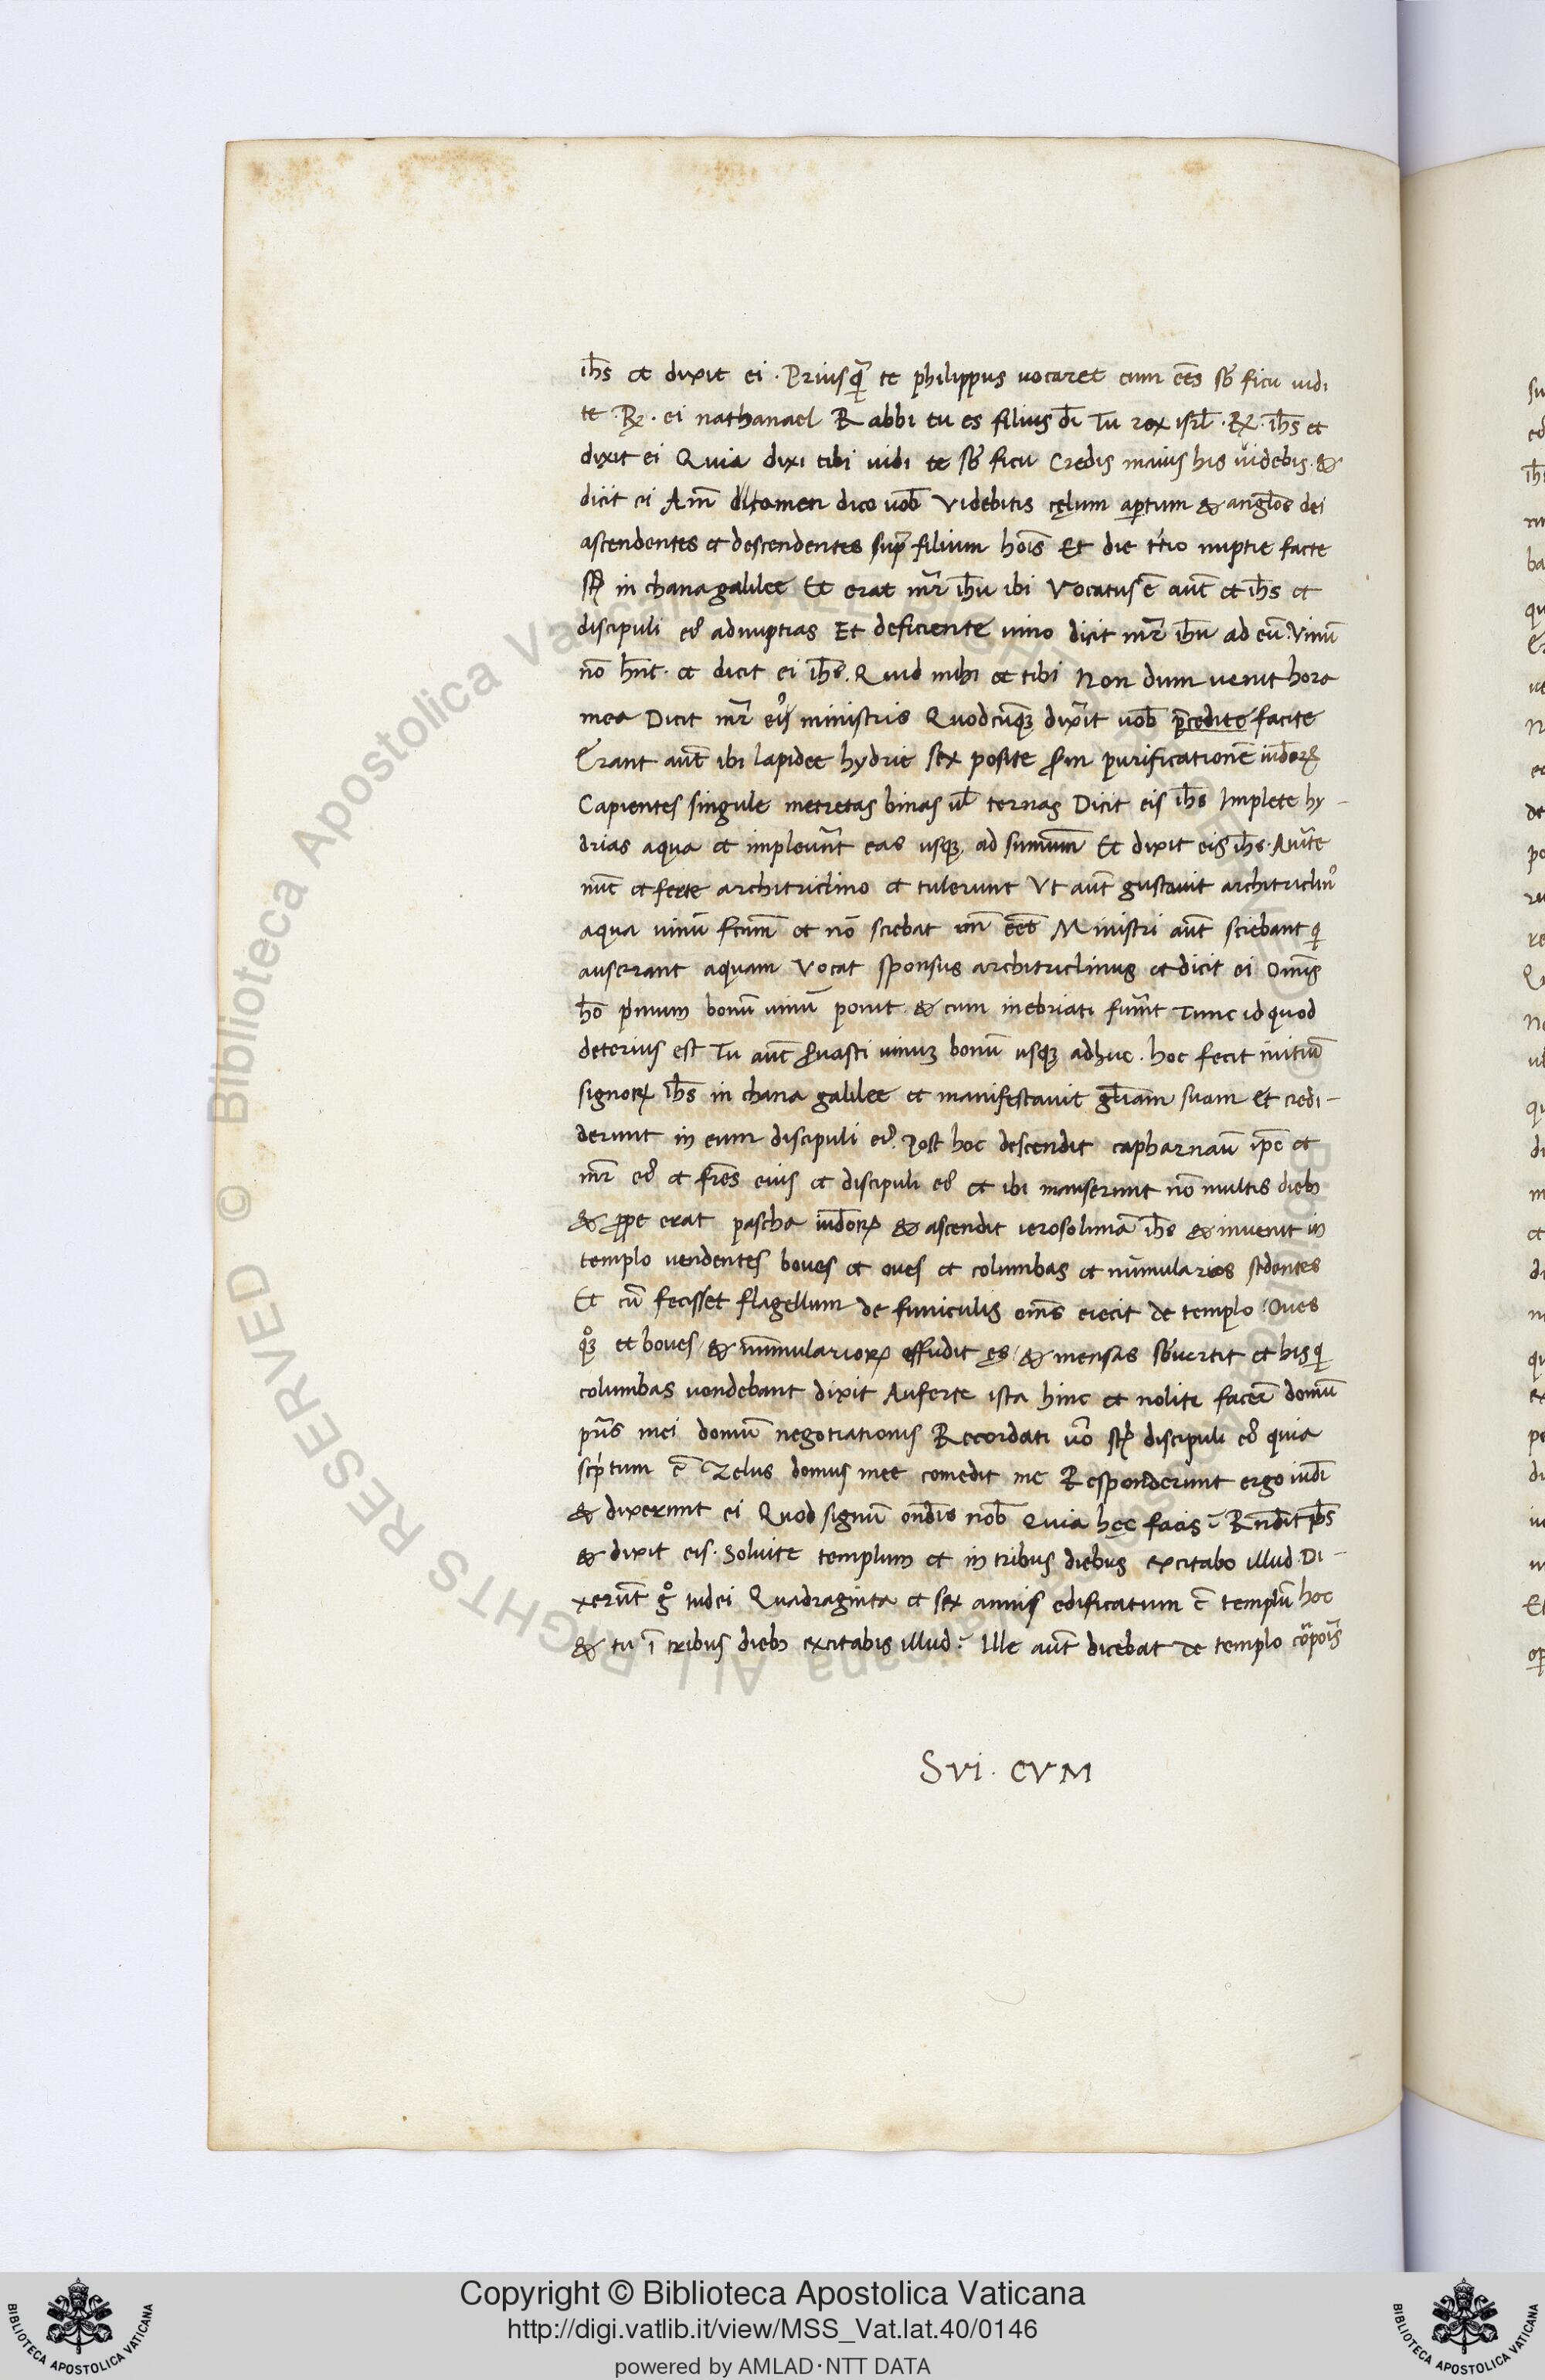 ih̄s et dixit ei · Priusq̄ te philippus uocaret cum ēēs sb̄ ficu uidi
te · R̷ · ei nathanael Rabbi tu es filius dī Tu rex isrl̄ · R̷ · ih̄s et
dixit ei Quia dixi tibi uidi te sb̄ ficu Credis maius his uidebis · &
dicit ei Am̄ dico uob̄ Videbitis cęlum aꝑtum & angl̄os dei
ascendentes et descendentes supr̄ filium hoīs Et die tͥtio nuptie facte
st̄ in chana galilee Et erat mr̄ ih̄u ibi Vocatus ē aut̄ et ih̄s et
discipuli eiꝰ ad nuptias Et deficiente uino dicit mr̄ ih̄u ad eū · Vinū
nō hn̄t · et dicit ei ih̄s · Quid mihi et tibi Non dum uenit hora
mea Dicit mr̄ eiꝰ ministris Quodcūqꝫ dix̄it uob̄ p̄cedite facite
Erant aut̄ ibi lapidee hydrie sex posite purificationē iud̄eoꝝ
Capientes singule metretas binas ul̄ ternas Dicit eis ih̄s Implete hy-
drias aqua et impleuer̄t eas usqꝫ ad summum Et dixit eis ih̄s · Aurite
nūc et ferte architriclino et tulerunt Vt aut̄ gustauit architriclinꝰ
aqua uinū fctum̄ et nō sciebat un̄ eēt Ministri aut̄ sciebant qͥ
auserrant aquam Vocat sponsus architriclinus et dicit ei Omīs
hō pͥmum bonū uinū ponit & cum inebriati fuer̄it Tunc id quod
deterius est Tu aut̄ ꝓuasti uinuꝫ bonū usqꝫ adhuc · hoc fecit initiū
signoꝝ ih̄s in chana galilee et manifestauit gl̄iam suam Et credi-
derunt in eum discipuli eiꝰ · post hoc descendit capharnaū ip̄e et
mr̄ eiꝰ et fr̄es eius et discipuli eiꝰ et ibi manserunt nō multis dieb
& ꝓpe erat pascha iud̄eoꝝ & ascendit ierosolimā ih̄s & inuenit in
templo uendentes boues et oues et columbas et nūmularios sedentes
Et cū fecisset flagellum de funiculis om̄s eiecit de templo / Oues
qͦqꝫ et boues / & numulariorꝝ effudit ęs / & mensas sb̄uertit et his qͥ
columbas uendebant dixit Auferte ista hinc et nolite facer̄ domū
pr̄is mei domū negotiationis Recordati uͦo st̄ discipuli eiꝰ quia
scͥptum ē Zelus domus mee comedit me Responderunt ergo iud̄i
& dixerunt ei Quod signū ond̄is nob̄ Quia hęc facis? Rn̄dit ih̄s
& dixit eis · Soluite templum et in tribus diebus excitabo illud · Di-
xerūt gͦ iudei Quadraginta et sex annis edificatum ē templū hoc
& tu ī tribus dieb excitabis illud? Ille aut̄ dicebat de templo corpoīs
SVI · CVM
Copyright © Biblioteca Apostolica Vaticana
http://digi.vatlib.it/view/MSS_Vat.lat.40/0146
powered by AMLAD·NTT DATA